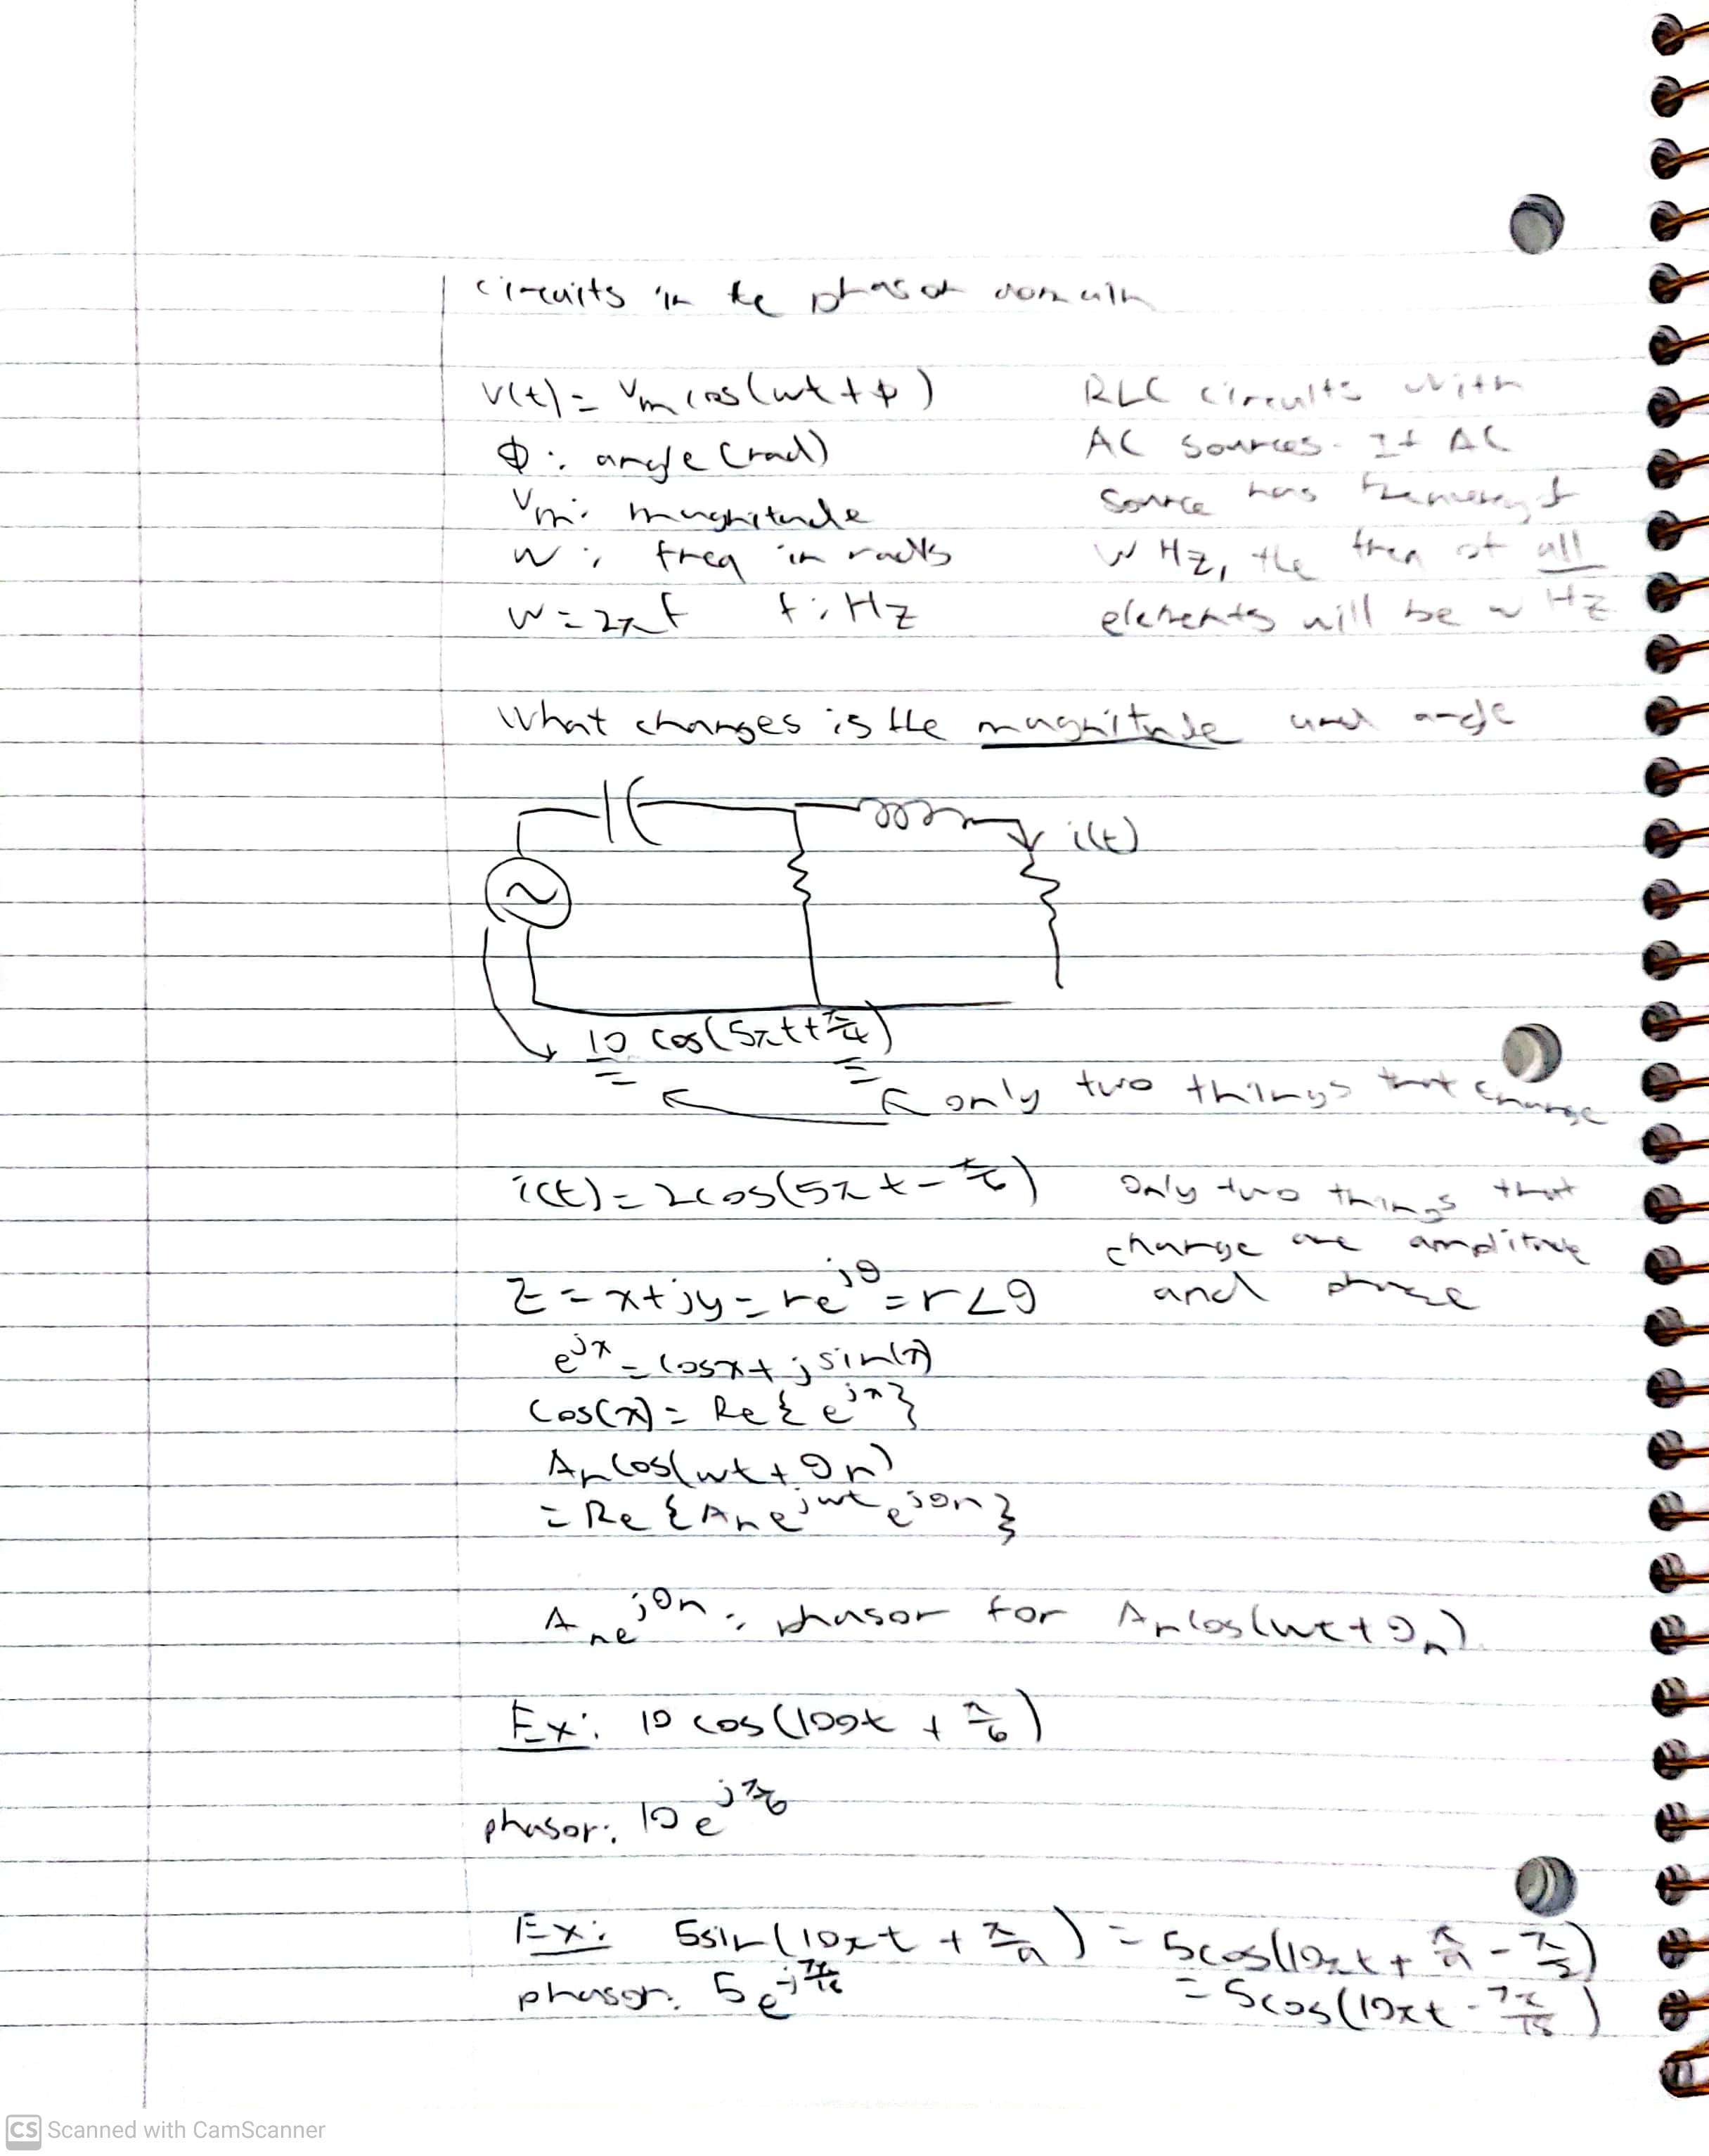 circuits in the phasor domain
v(t) = Vm cos(wt + φ)
φ: angle (rad)
Vm: magnitude
w: freq in rad/s
w = 2πf f: Hz
RLC circuits with
AC sources. If AC
source has frequency of
w Hz, the freq of all
elements will be w Hz
What changes is the magnitude and angle
i(t)
10 cos(5πt + π/4)
only two things that change
i(t) = 2cos(5πt - π/6)
only two things that
change are amplitude
and phase
z = x + jy = re^jθ = r∠θ
e^jx = cosx + jsin(x)
cos(x) = Re{e^jx}
An cos(wt + θn)
= Re{An e^jwt e^jθn}
An e^jθn: phasor for An cos(wt + θn)
Ex: 10 cos(100t + π/6)
phasor: 10 e^jπ/6
Ex: 5sin(10πt + π/9) = 5cos(10πt + π/9 - π/2)
= 5cos(10πt - 7π/18)
phasor: 5 e^-j7π/18
CS Scanned with CamScanner